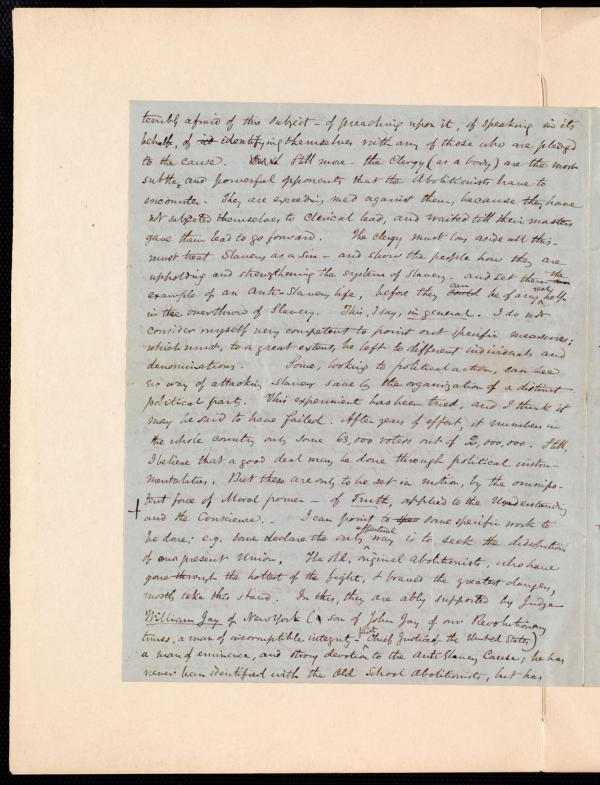 terribly afraid of this subject - of preaching upon it, of speaking in its
behalf, of identifying themselves with any of those who are pledged
to the cause. Still more - the Clergy (as a body) are the most
subtle, and powerful opponents that the Abolitionists have to
encounter. They are exceeding mad against them, because they have
not subjected themselves to Clerical lead, and waited till their masters
gave them lead to go forward. The clergy must lay aside all this -
must treat Slavery as a Sin - and show the people how they are
upholding and strengthening the system of Slavery - and set them the
example of an Anti-Slavery life, before they can be of any real help
in the overthrow of Slavery. This, I say, in general. I do not
consider myself very competent to point out specific measures;
which must, to a great extent, be left to different individuals and
denominations. Some, looking to political action, can see
no way of attacking slavery save by the organization of a distinct
political party. This experiment has been tried, and I think it
may be said to have failed. After years of effort, it numbers in
the whole country only some 63,000 voters out of 2,000,000. Still,
I believe that a good deal may be done through political instru-
mentalities. But these are only to be set in motion, by the omnipo-
tent force of Moral power - of Truth, applied to the Understanding
and the Conscience. - I can point to some specific work to
be done; e.g. some declare the only effectual way is to seek the dissolution
of our present Union. The old, original abolitionists, who have
gone through the hottest of the fight, & braved the greatest dangers,
mostly take this stand. In this, they are ably supported by Judge
William Jay of New York (a son of John Jay of our Revolutionary
times, a man of incorruptible integrity - first Chief Justice of the United States)
a man of eminence, and strong devotion to the Anti Slavery Cause; he has
never been identified with the Old School Abolitionists, but has